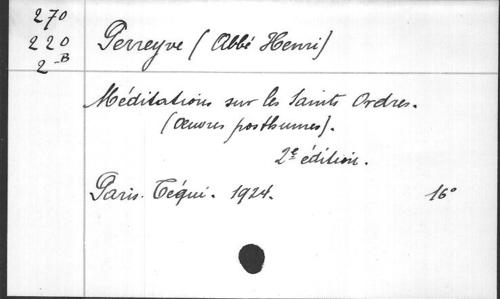 270
220
2-B
Perreyve (Abbé Henri)
Méditations sur les Saints Ordres.
(Œuvres posthumes).
2e édition.
Paris. Téqui. 1924. 16°